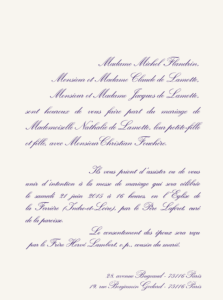 Madame Michel Flandrin,
Monsieur et Madame Claude de Lamotte,
Monsieur et Madame Jacques de Lamotte,
sont heureux de vous faire part du mariage de
Mademoiselle Nathalie de Lamotte, leur petite-fille
et fille, avec Monsieur Christian Fouchère.
Ils vous prient d'assister ou de vous
unir d'intention à la messe de mariage qui sera célébrée
le samedi 21 juin 2015 à 16 heures, en l'Eglise de
la Ferrière (Indre-et-Loire), par le Père Lefort, curé
de la paroisse.
Le consentement des époux sera reçu
par le Frère Hervé Lambert, o.p., cousin du marié.
28, avenue Bugeaud - 75116 Paris
19, rue Benjamin Godard - 75116 Paris